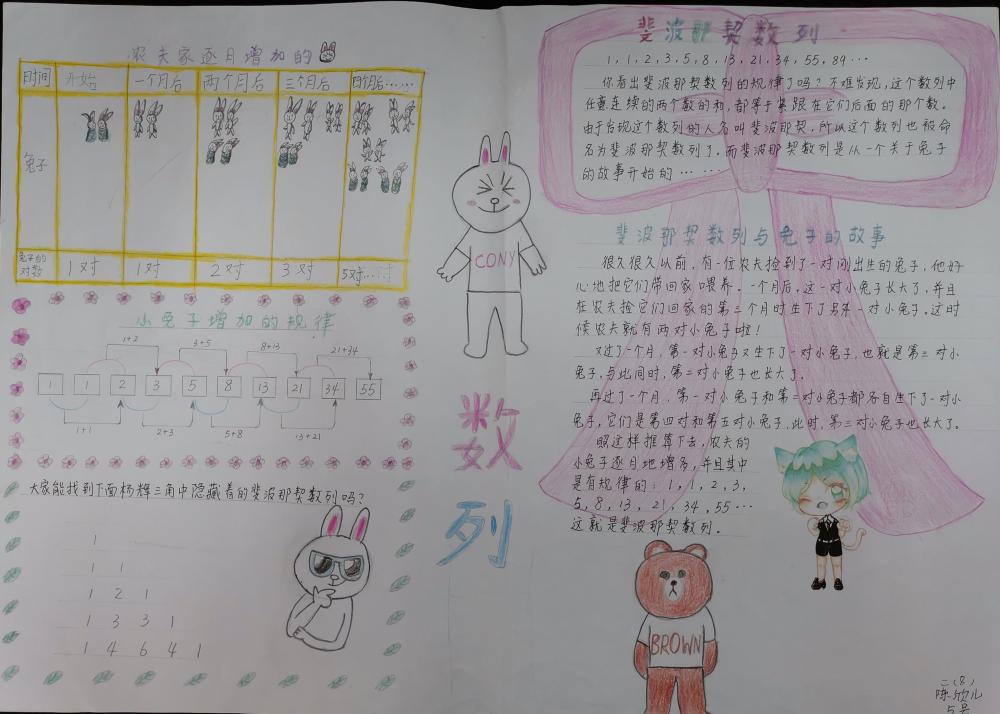 农夫家逐月增加的
时间 开始 一个月后 两个月后 三个月后 四个月后……
兔子
兔子的对数 1对 1对 2对 3对 5对…
小兔子增加的规律
1+2 3+5 8+13 21+34
1 1 2 3 5 8 13 21 34 55
1+1 2+3 5+8 13+21
大家能找到下面杨辉三角中隐藏着的斐波那契数列吗?
1
1 1
1 2 1
1 3 3 1
1 4 6 4 1
CONY
数列
斐波那契数列
1,1,2,3,5,8,13,21,34,55,89…
你看出斐波那契数列的规律了吗?不难发现,这个数列中
任意连续的两个数的和,都等于紧跟在它们后面的那个数。
由于发现这个数列的人名叫斐波那契,所以这个数列也被命
名为斐波那契数列了。而斐波那契数列是从一个关于兔子
的故事开始的……
斐波那契数列与兔子的故事
很久很久以前,有一位农夫捡到了一对刚出生的兔子,他好
心地把它们带回家喂养。一个月后,这一对小兔子长大了,并且
在农夫捡它们回家的第二个月时生下了另外一对小兔子。这时
候农夫就有两对小兔子啦!
又过了一个月,第一对小兔子又生下了一对小兔子,也就是第三对小
兔子,与此同时,第二对小兔子也长大了。
再过了一个月,第一对小兔子和第二对小兔子都各自生下了一对小
兔子,它们是第四对和第五对小兔子,此时,第三对小兔子也长大了。
照这样推算下去,农夫的
小兔子逐月地增多,并且其中
是有规律的:1,1,2,3,
5,8,13,21,34,55…
这就是斐波那契数列。
BROWN
二(8)
陈欣儿
5号